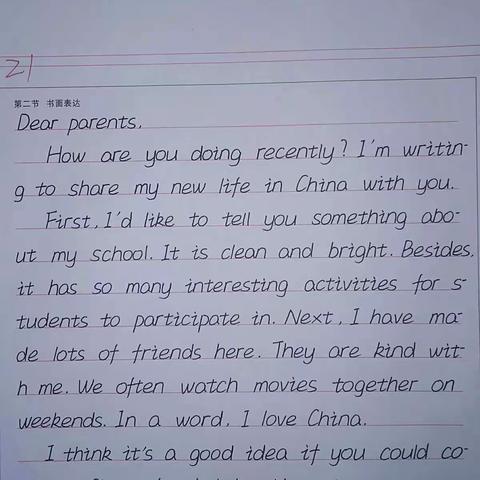 21
第二节 书面表达
Dear parents,
How are you doing recently? I'm writin-
g to share my new life in China with you.
First, I'd like to tell you something abo-
ut my school. It is clean and bright. Besides,
it has so many interesting activities for s-
tudents to participate in. Next, I have ma-
de lots of friends here. They are kind wit-
h me. We often watch movies together on
weekends. In a word, I love China.
I think it's a good idea if you could co-